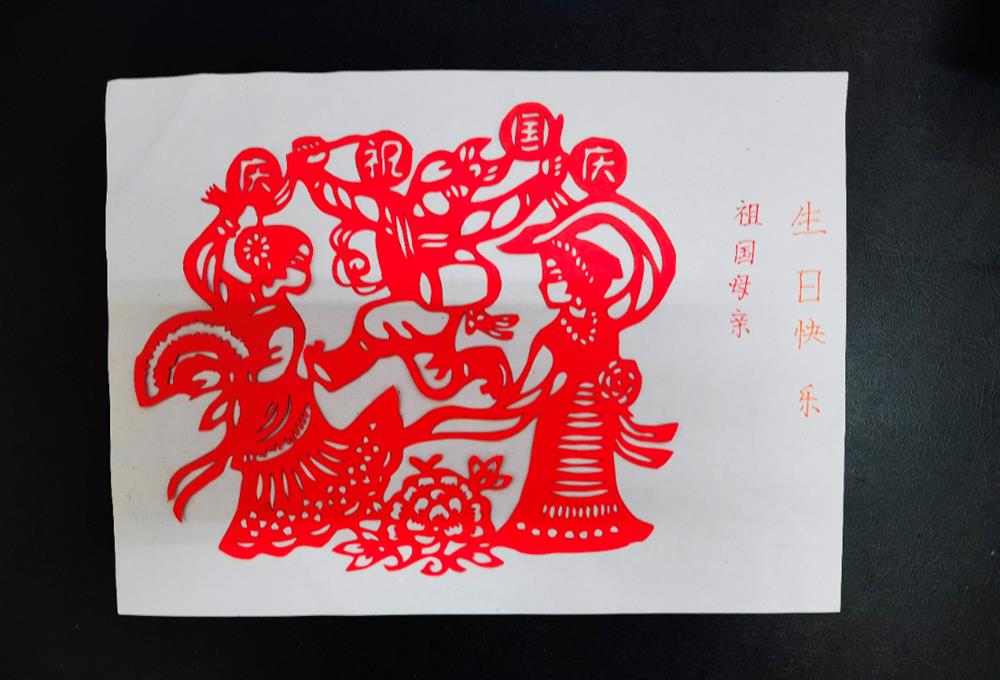 庆祝国庆
祖国母亲
生日快乐